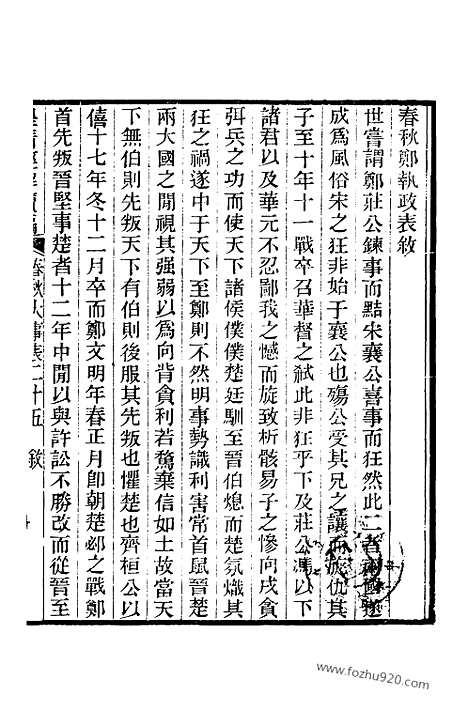 春秋鄭執政表敘
世嘗謂鄭莊公鍊事而黠宋襄公喜事而狂然此二者兩國遂
成爲風俗宋之狂非始于襄公也殤公受其兄之讓而旋仇其
子至十年十一戰卒召華督之弒此非狂乎下及莊公馮以下
諸君以及華元不忍鄙我之憾而旋致析骸易子之慘向戌貪
弭兵之功而使天下諸侯僕僕楚廷馴至晉伯熄而楚氛熾其
狂之禍遂中于天下至鄭則不然明事勢識利害常首鼠晉楚
兩大國之閒視其强弱以爲向背貪利若鶩棄信如土故當天
下無伯則先叛天下有伯則後服其先叛也懼楚也齊桓公以
僖十七年冬十二月卒而鄭文明年春正月卽朝楚邲之戰鄭
首先叛晉堅事楚者十二年中閒以與許訟不勝改而從晉至
春秋大事表二十五 敘
www.fozhu920.com